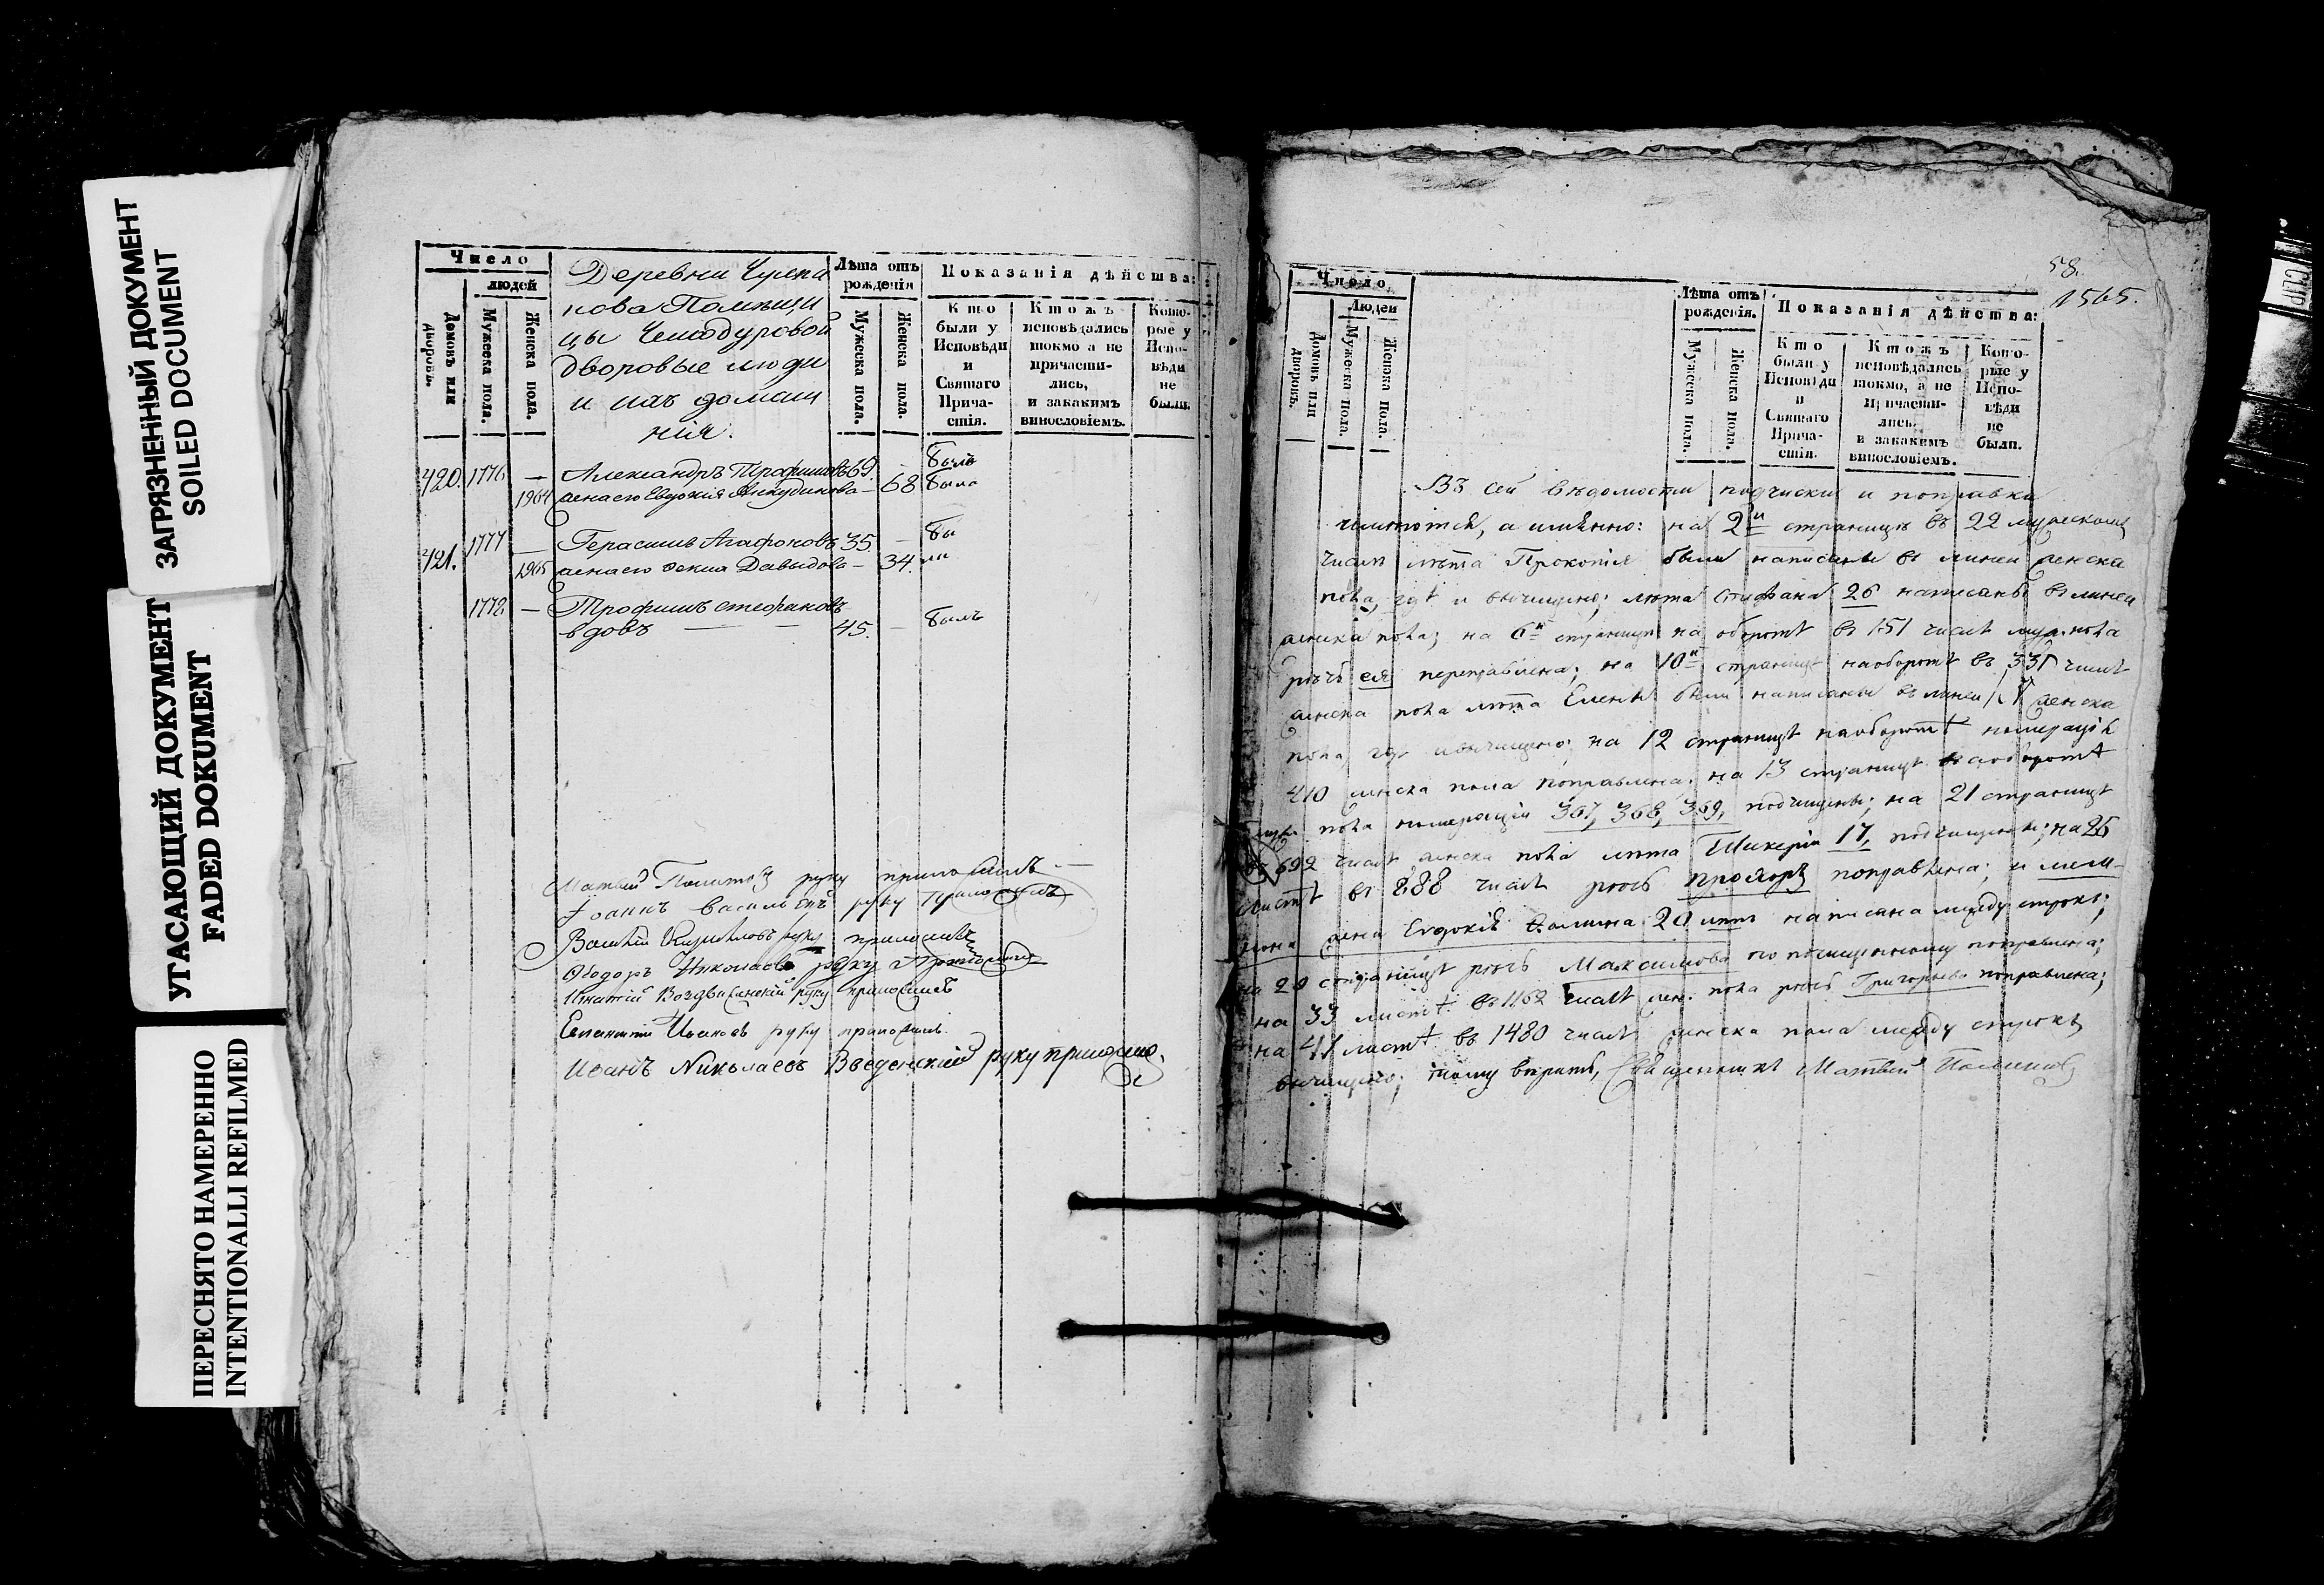 ЗАГРЯЗНЕННЫЙ ДОКУМЕНТ
SOILED DOCUMENT
УГАСАЮЩИЙ ДОКУМЕНТ
FADED DOKUMENT
ПЕРЕСНЯТО НАМЕРЕННО
INTENTIONALLI REFILMED
Число
людей
Домовъ или дворовъ.
Мужеска пола.
Женска пола.
Деревни Чулпа
нова Помѣщи
цы Чемодуровой
дворовые люди
и ихъ домаш
нія.
Лѣта отъ рожденія
Мужеска пола.
Женска пола.
Показанія дѣйства:
Кто были у Исповѣди и Святаго Прича- стія.
Ктожъ исповѣдались токмо а не причасти- лись, и закакимъ винословіемъ.
Кото- рые у Испо- вѣди не были.
420. 1776 — Александръ Трофимовъ 69. — былъ
1964 жена его Евдокія Анкудинова — 68 была
421. 1777 — Герасимъ Агафоновъ 35 — бы
1965 жена его Давыдова — 34. ли
1778 — Трофимъ Стефановъ
вдовъ 45. — былъ
Матвей руку приложилъ
Іоаннъ Васильевъ руку приложилъ
руку приложилъ
Ѳеодоръ Николаевъ руку приложилъ
Игнатій Воздвиженскій руку приложилъ
Евлампій Ивановъ руку приложилъ.
Иванъ Николаевъ Введенскій руку приложи.
58.
1565.
Число
Людей
Домовъ или дворовъ.
Мужеска пола.
Женска пола.
Лѣта отъ рожденія.
Мужеска пола.
Женска пола.
Показанія дѣйства:
Кто были у Исповѣди и Святаго Прича- стія.
Ктожъ исповѣдались токмо, а не Причасти- лись, и закакимъ винословіемъ.
Кото- рые у Испо- вѣди не были.
Въ сей вѣдомости подчиски и поправки
имѣются, а имѣнно: на 2й страницѣ въ 22 мужескомъ
числѣ лѣта Прокопія были написаны въ линеи женска
пола, гдѣ и вычищено; лѣта Стефана 26 написаны въ линеи
женска пола; на 6й страницѣ на оборотѣ въ 151 числѣ муж. пола
рѣчь ея переправлена; на 10й страницѣ наоборотѣ въ 331 числѣ
женска пола лѣта Елены были написаны въ линеи женска
пола, гдѣ и вычищено; на 12 страницѣ наоборотѣ номерація
410 женска пола поправлена; на 13 страницѣ наоборотѣ
муж. пола номераціи 367, 368, 369, подчищены; на 21 страницѣ
въ 692 числѣ женска пола лѣта 17, подчищены; на 25
листѣ въ 888 числѣ рѣчь Прохоръ поправлена; и
жена Евдокія Фомина 20 лѣтъ написана между строкъ;
на 29 страницѣ рѣчь Максимова по почищенному поправлена;
на 33 листѣ въ 1162 числѣ жен. пола рѣчь Григорьева поправлена;
на 41 листѣ въ 1480 числѣ женска пола между строкъ
вычищено; тому вѣрить, Священникъ Матвей